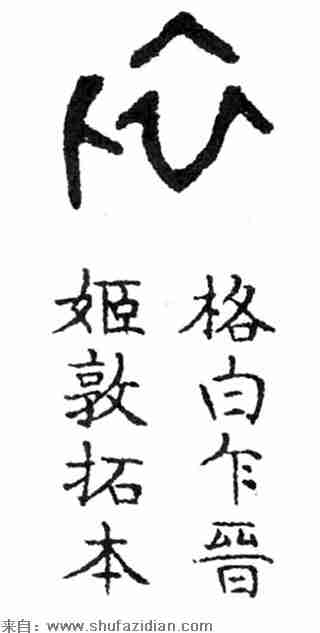 格白乍晉
姬敦拓本
来自：www.shufazidian.com